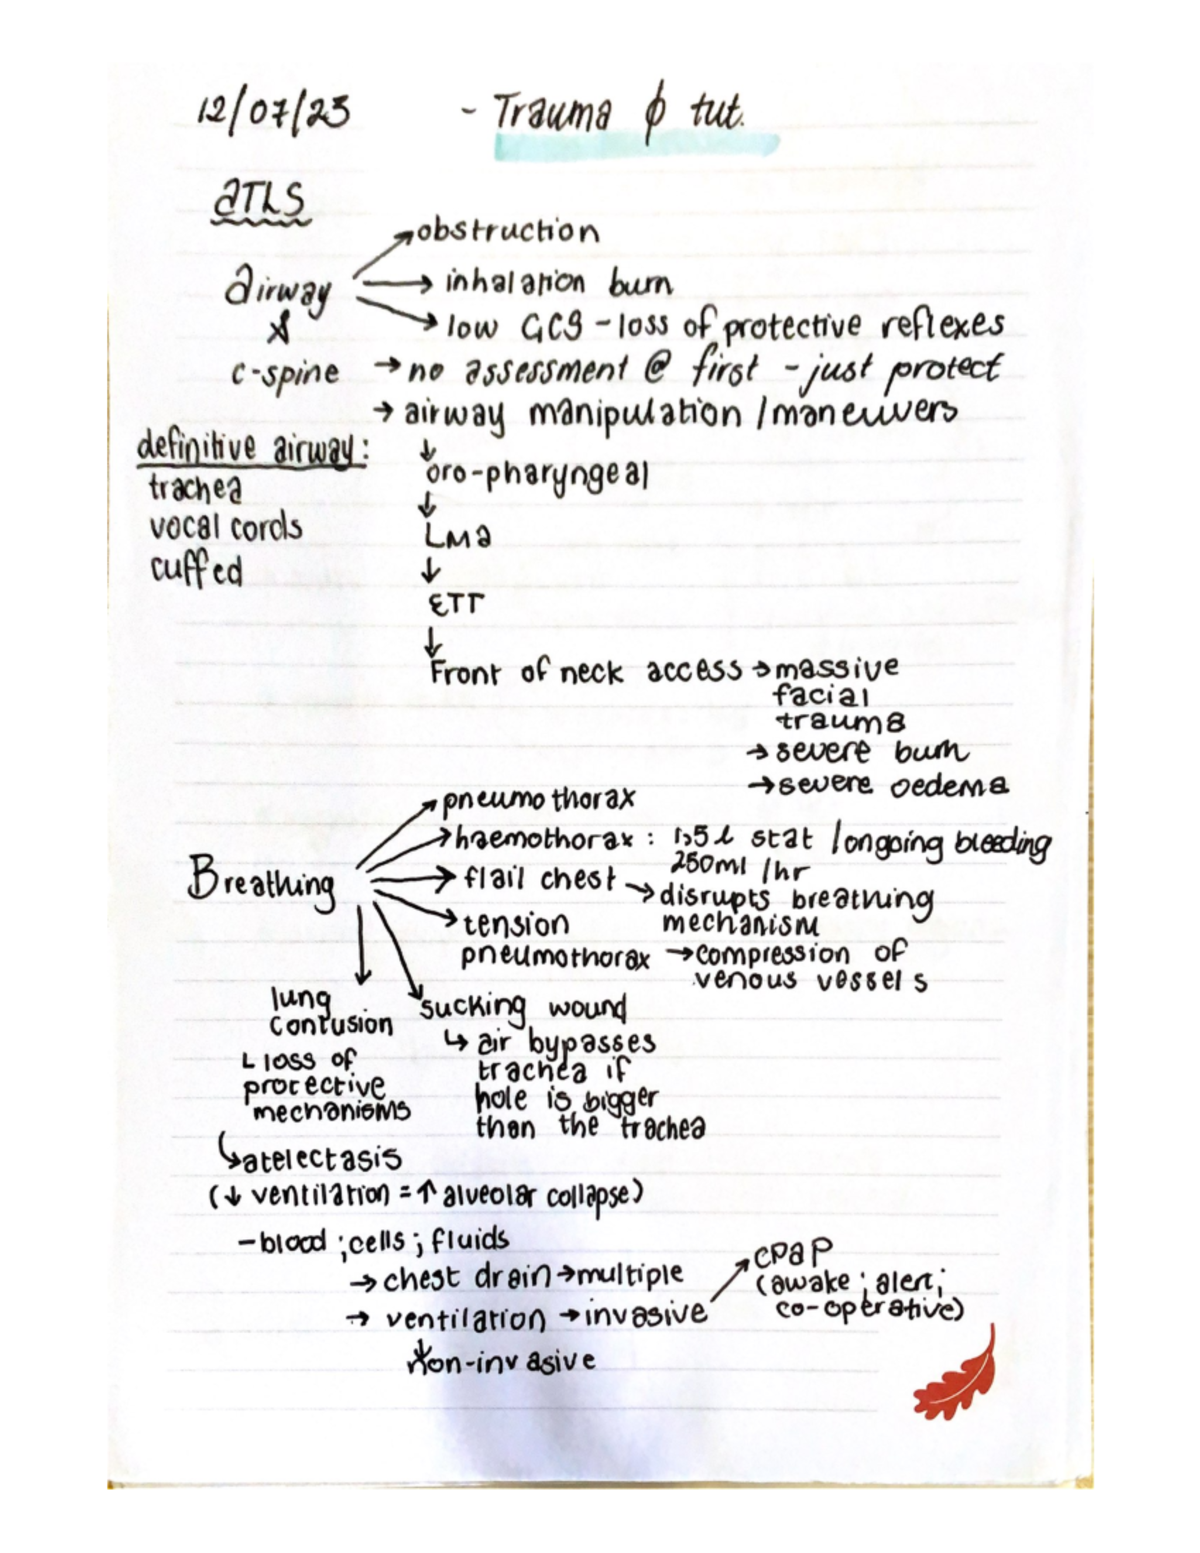 12/07/23 - Trauma ϕ tut.
ATLS
Airway → obstruction
→ inhalation burn
→ low GCS - loss of protective reflexes
&
c-spine → no assessment @ first - just protect
→ airway manipulation / maneuvers
definitive airway:
trachea
vocal cords
cuffed
↓
oro-pharyngeal
↓
LMA
↓
ETT
↓
Front of neck access → massive
facial
trauma
→ severe burn
→ severe oedema
Breathing → pneumothorax
→ haemothorax : 1,5l stat / ongoing bleeding
250ml /hr
→ flail chest → disrupts breathing
mechanism
→ tension
pneumothorax → compression of
venous vessels
→ lung
contusion
↳ loss of
protective
mechanisms
↳ atelectasis
(↓ ventilation = ↑ alveolar collapse)
→ sucking wound
↳ air bypasses
trachea if
hole is bigger
than the trachea
- blood ; cells ; fluids
→ chest drain → multiple
→ ventilation → invasive → CPAP
(awake ; alert ;
co-operative)
↓
non-invasive